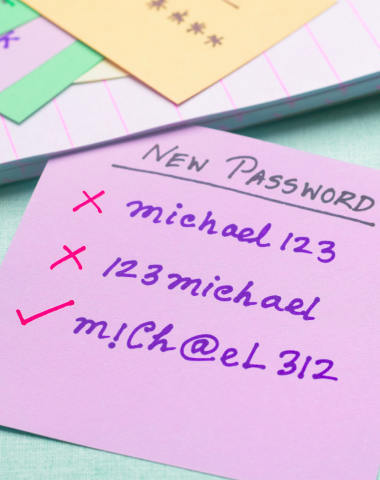 ****
NEW PASSWORD
michael 123
123michael
m!Ch@eL 312